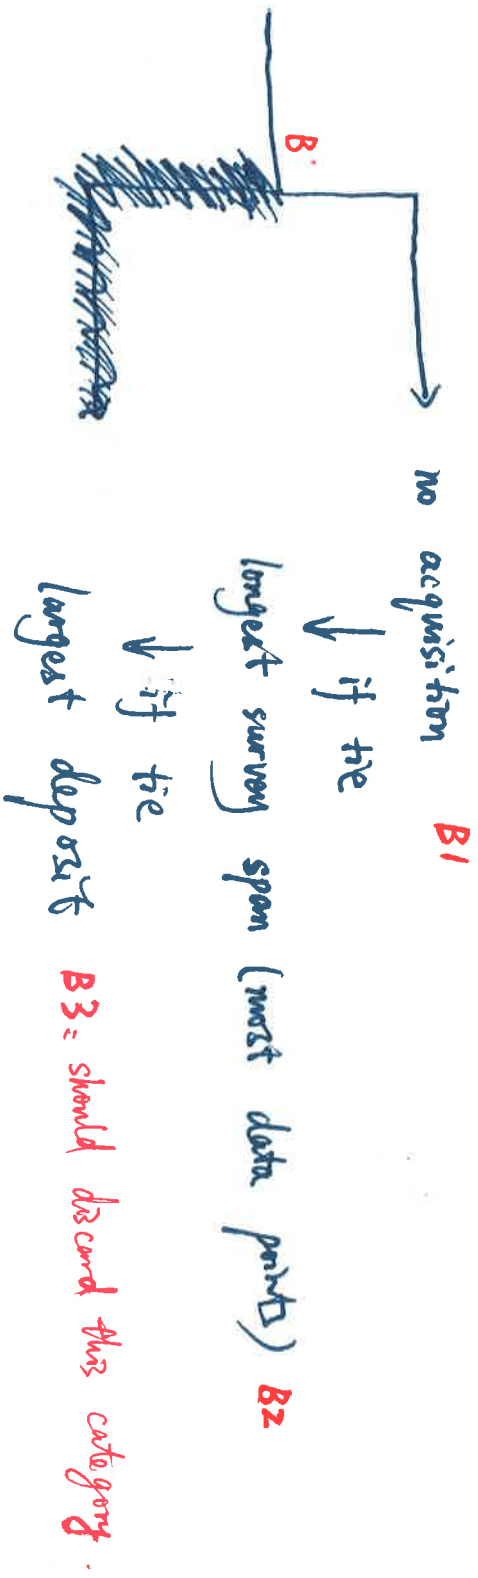 B.
no acquisition B1
↓ if tie
longest survey span (most data points) B2
↓ if tie
largest deposit B3 = should discard this category.